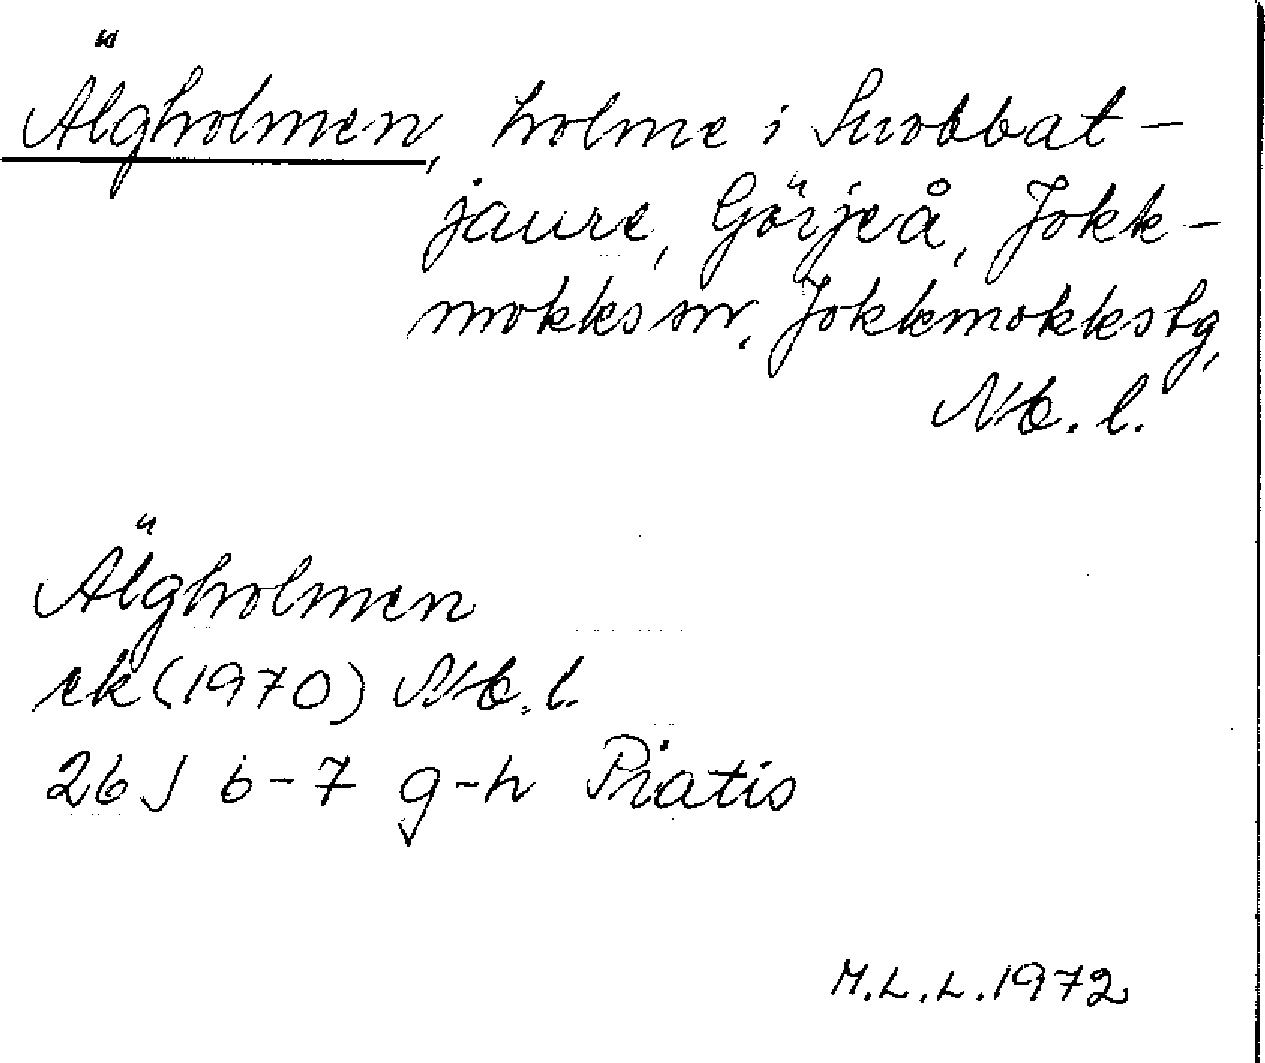 Älgholmen, holme i Suobbat-
jaure, Görjeå, Jokk-
mokks sn, Jokkmokks tg,
Nb. l.
Älgholmen
ek (1970) Nb. l.
26 J 6-7 g-h Piatis
M.L.L. 1972